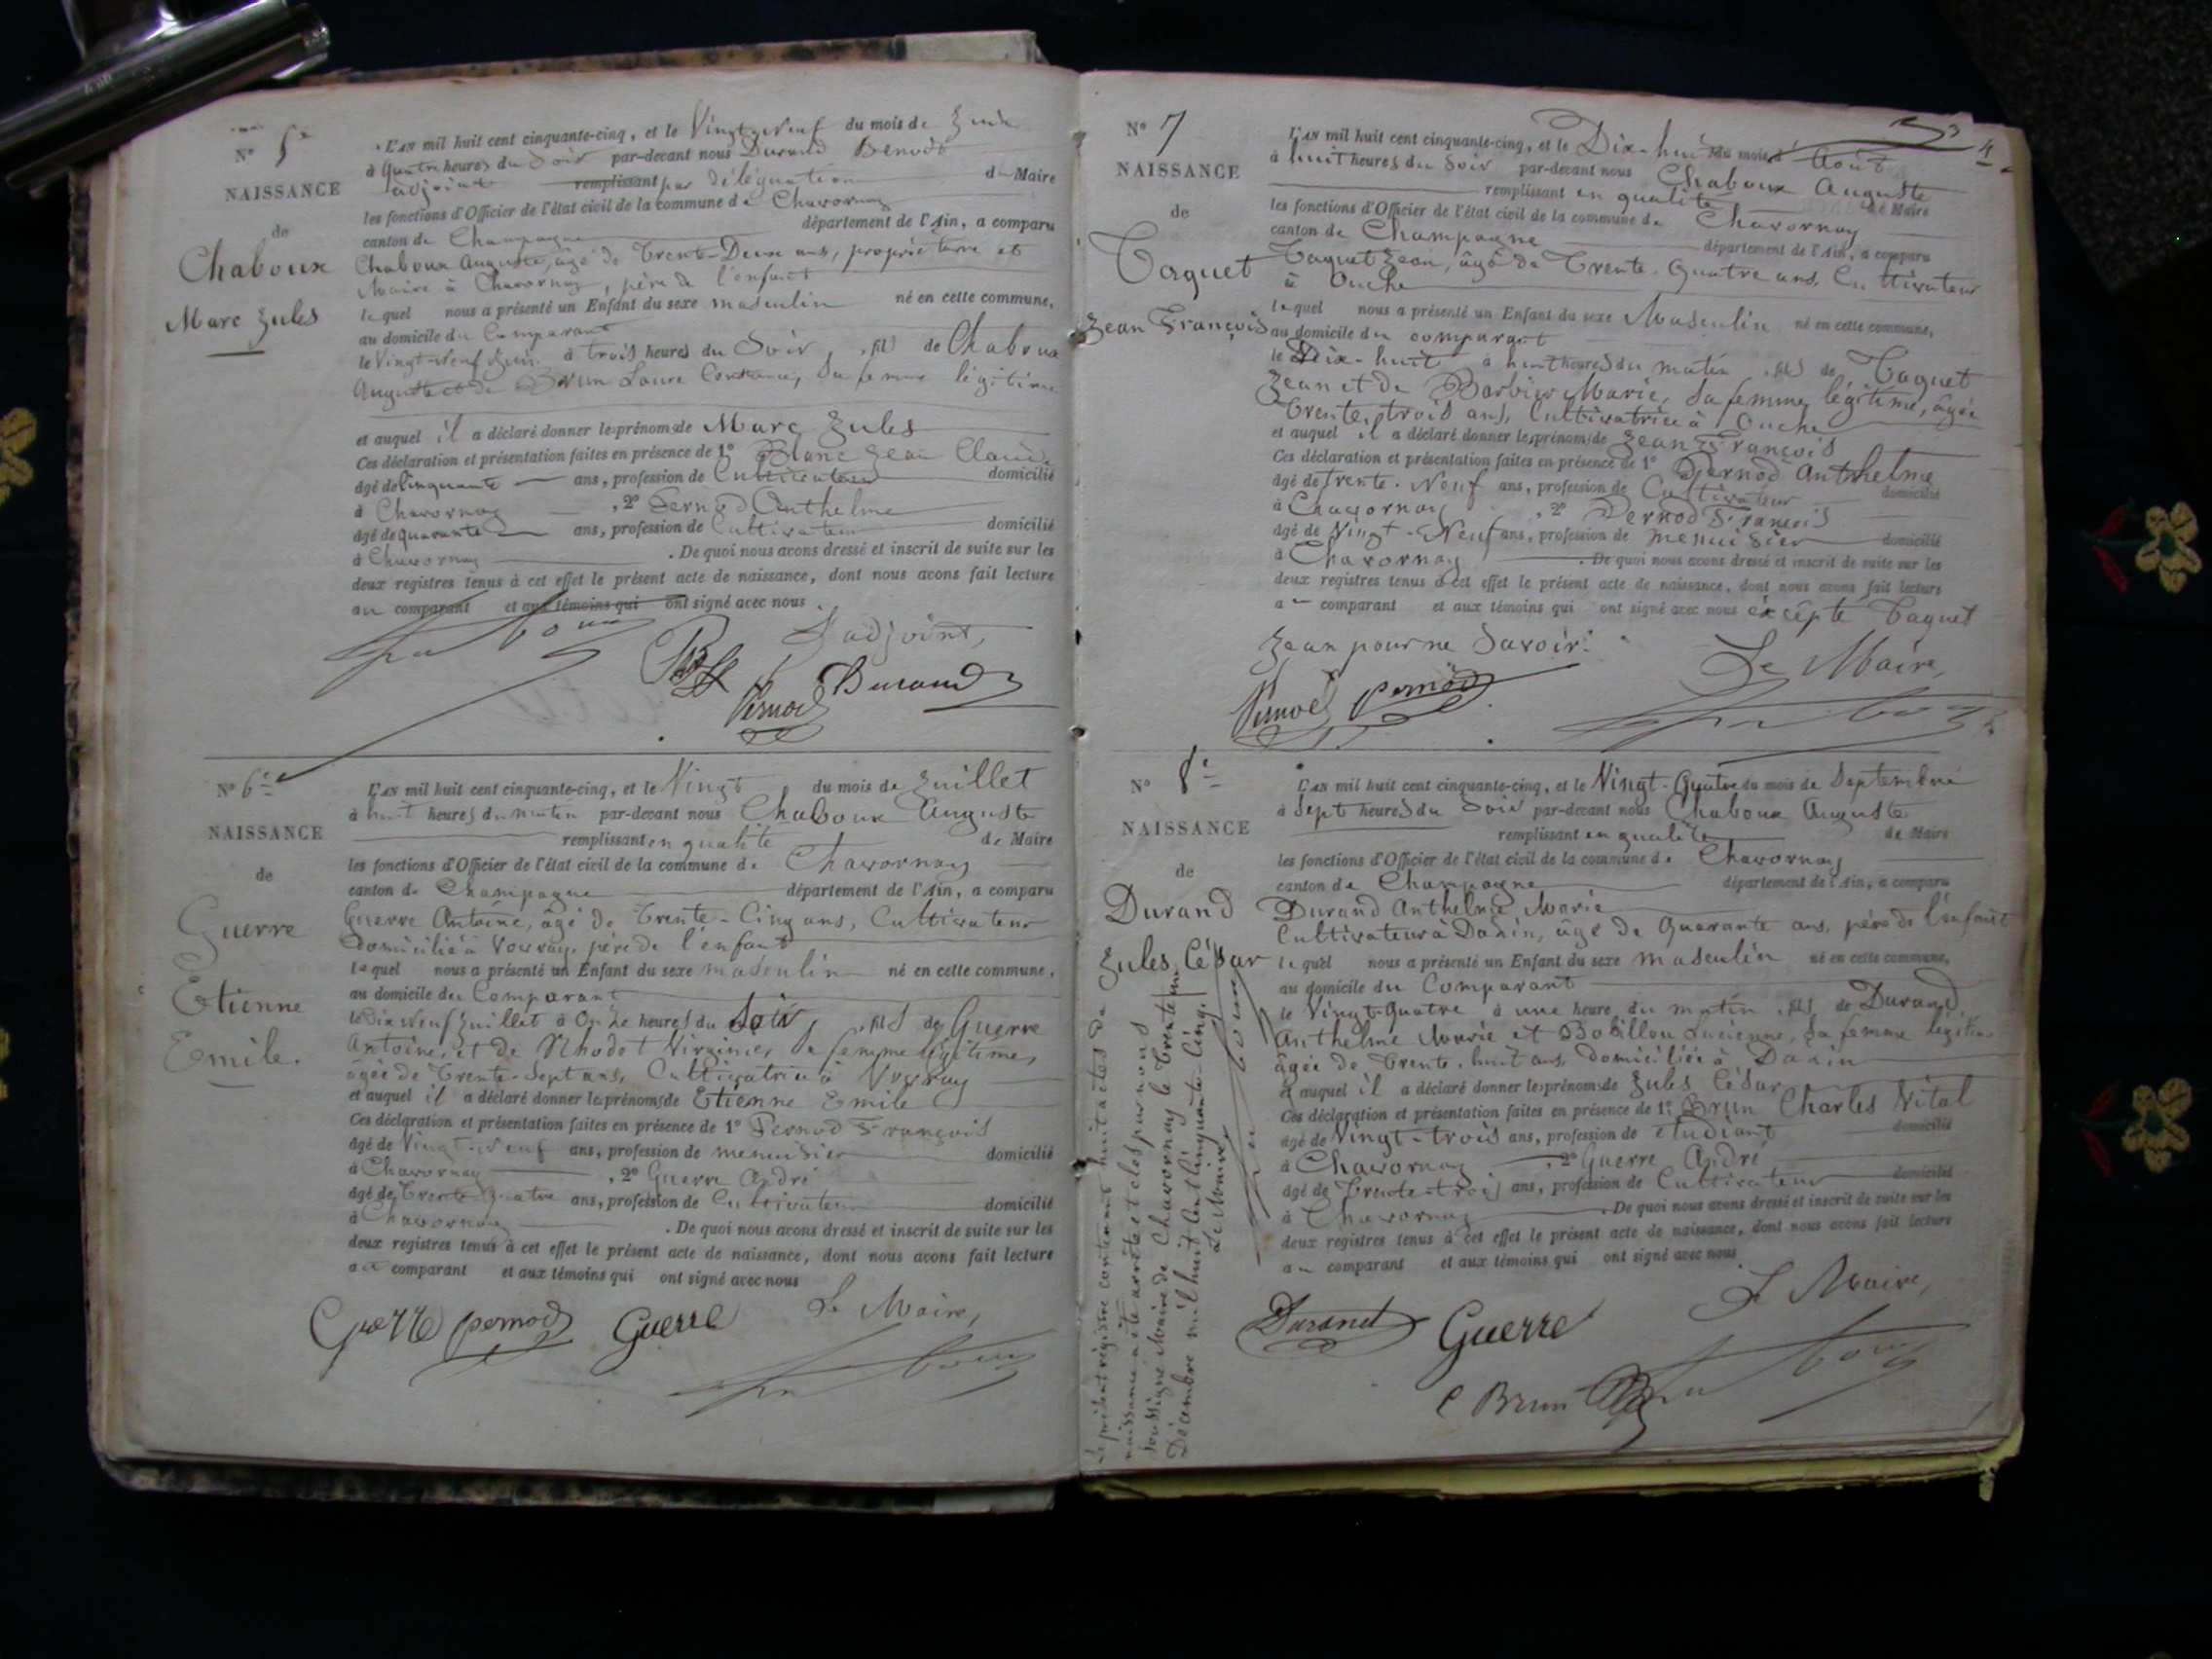 N° 5e
NAISSANCE
de
Chaboux
Marc Jules
L'AN mil huit cent cinquante-cinq, et le Vingt-Neuf du mois de Juin
à Quatre heures du Soir par-devant nous Durand Benoît
adjoint remplissant par délégation du Maire
les fonctions d'Officier de l'état civil de la commune de Chavornay
canton de Champagne département de l'Ain, a comparu
Chaboux Auguste, âgé de Trente-Deux ans, propriétaire et
Maire à Chavornay, père de l'enfant
lequel nous a présenté un Enfant du sexe masculin né en cette commune,
au domicile du Comparant
le Vingt-Neuf Juin à trois heures du Soir, fils de Chaboux
Auguste et de Brun Laure Constance, Sa femme légitime
et auquel il a déclaré donner les prénoms de Marc Jules
Ces déclaration et présentation faites en présence de 1° Blanc Jean Claude
âgé de Cinquante ans, profession de Cultivateur domicilié
à Chavornay, 2° Pernod Anthelme
âgé de quarante ans, profession de Cultivateur domicilié
à Chavornay. De quoi nous avons dressé et inscrit de suite sur les
deux registres tenus à cet effet le présent acte de naissance, dont nous avons fait lecture
au comparant et aux témoins qui ont signé avec nous.
L'adjoint,
Pernod Durand
N° 6e
NAISSANCE
de
Guerre
Etienne
Emile.
L'AN mil huit cent cinquante-cinq, et le Vingt du mois de Juillet
à huit heures du matin par-devant nous Chaboux Auguste
remplissant en qualité de Maire
les fonctions d'Officier de l'état civil de la commune de Chavornay
canton de Champagne département de l'Ain, a comparu
Guerre Antoine, âgé de Trente-Cinq ans, Cultivateur
domicilié à Vovray, père de l'enfant
lequel nous a présenté un Enfant du sexe masculin né en cette commune,
au domicile du Comparant
le Dix Neuf Juillet à Onze heures du Soir, fils de Guerre
Antoine, et de Rhodet Virginie, Sa femme légitime,
âgée de Trente-Sept ans, Cultivatrice à Vovray
et auquel il a déclaré donner les prénoms de Etienne Emile
Ces déclaration et présentation faites en présence de 1° Pernod François
âgé de Vingt-Neuf ans, profession de menuisier domicilié
à Chavornay, 2° Guerre André
âgé de Trente Quatre ans, profession de Cultivateur domicilié
à Chavornay. De quoi nous avons dressé et inscrit de suite sur les
deux registres tenus à cet effet le présent acte de naissance, dont nous avons fait lecture
au comparant et aux témoins qui ont signé avec nous
Le Maire,
Guerre Pernod Guerre
4
N° 7
NAISSANCE
de
Taguet
Jean François
L'AN mil huit cent cinquante-cinq, et le Dix-huit du mois d'Août
à huit heures du Soir par-devant nous Chaboux Auguste
remplissant en qualité de Maire
les fonctions d'Officier de l'état civil de la commune de Chavornay
canton de Champagne département de l'Ain, a comparu
Taguet Jean, âgé de Trente-Quatre ans, Cultivateur
à Ouche
lequel nous a présenté un Enfant du sexe Masculin né en cette commune,
au domicile du comparant
le Dix-huit à huit heures du matin, fils de Taguet
Jean et de Barbier Marie, Sa femme légitime, âgée
Trente-trois ans, Cultivatrice à Ouche
et auquel il a déclaré donner les prénoms de Jean François
Ces déclaration et présentation faites en présence de 1° Pernod Anthelme
âgé de Trente-Neuf ans, profession de Cultivateur domicilié
à Chavornay, 2° Pernod François
âgé de Vingt-Neuf ans, profession de menuisier domicilié
à Chavornay. De quoi nous avons dressé et inscrit de suite sur les
deux registres tenus à cet effet le présent acte de naissance, dont nous avons fait lecture
au comparant et aux témoins qui ont signé avec nous excepté Taguet
Jean pour ne Savoir.
Le Maire,
Pernod Pernod
N° 8e
NAISSANCE
de
Durand
Jules César
L'AN mil huit cent cinquante-cinq, et le Vingt-Quatre du mois de Septembre
à Sept heures du Soir par-devant nous Chaboux Auguste
remplissant en qualité de Maire
les fonctions d'Officier de l'état civil de la commune de Chavornay
canton de Champagne département de l'Ain, a comparu
Durand Anthelme Marie
Cultivateur à Dazin, âgé de Quarante ans, père de l'enfant
lequel nous a présenté un Enfant du sexe masculin né en cette commune,
au domicile du Comparant
le Vingt-Quatre à une heure du matin, fils de Durand
Anthelme Marie et Bobillon Lucienne, Sa femme légitime
âgée de Trente-huit ans, domiciliée à Dazin
et auquel il a déclaré donner les prénoms de Jules César
Ces déclaration et présentation faites en présence de 1° Brun Charles Vital
âgé de Vingt-trois ans, profession de étudiant domicilié
à Chavornay, 2° Guerre André
âgé de Trente-trois ans, profession de Cultivateur domicilié
à Chavornay. De quoi nous avons dressé et inscrit de suite sur les
deux registres tenus à cet effet le présent acte de naissance, dont nous avons fait lecture
au comparant et aux témoins qui ont signé avec nous
Le Maire,
Durand Guerre
C Brun
Le présent registre contenant huit actes de
naissance a été arrêté et clos par nous
soussigné Maire de Chavornay le Trente un
Décembre mil huit cent Cinquante-Cinq.
Le Maire